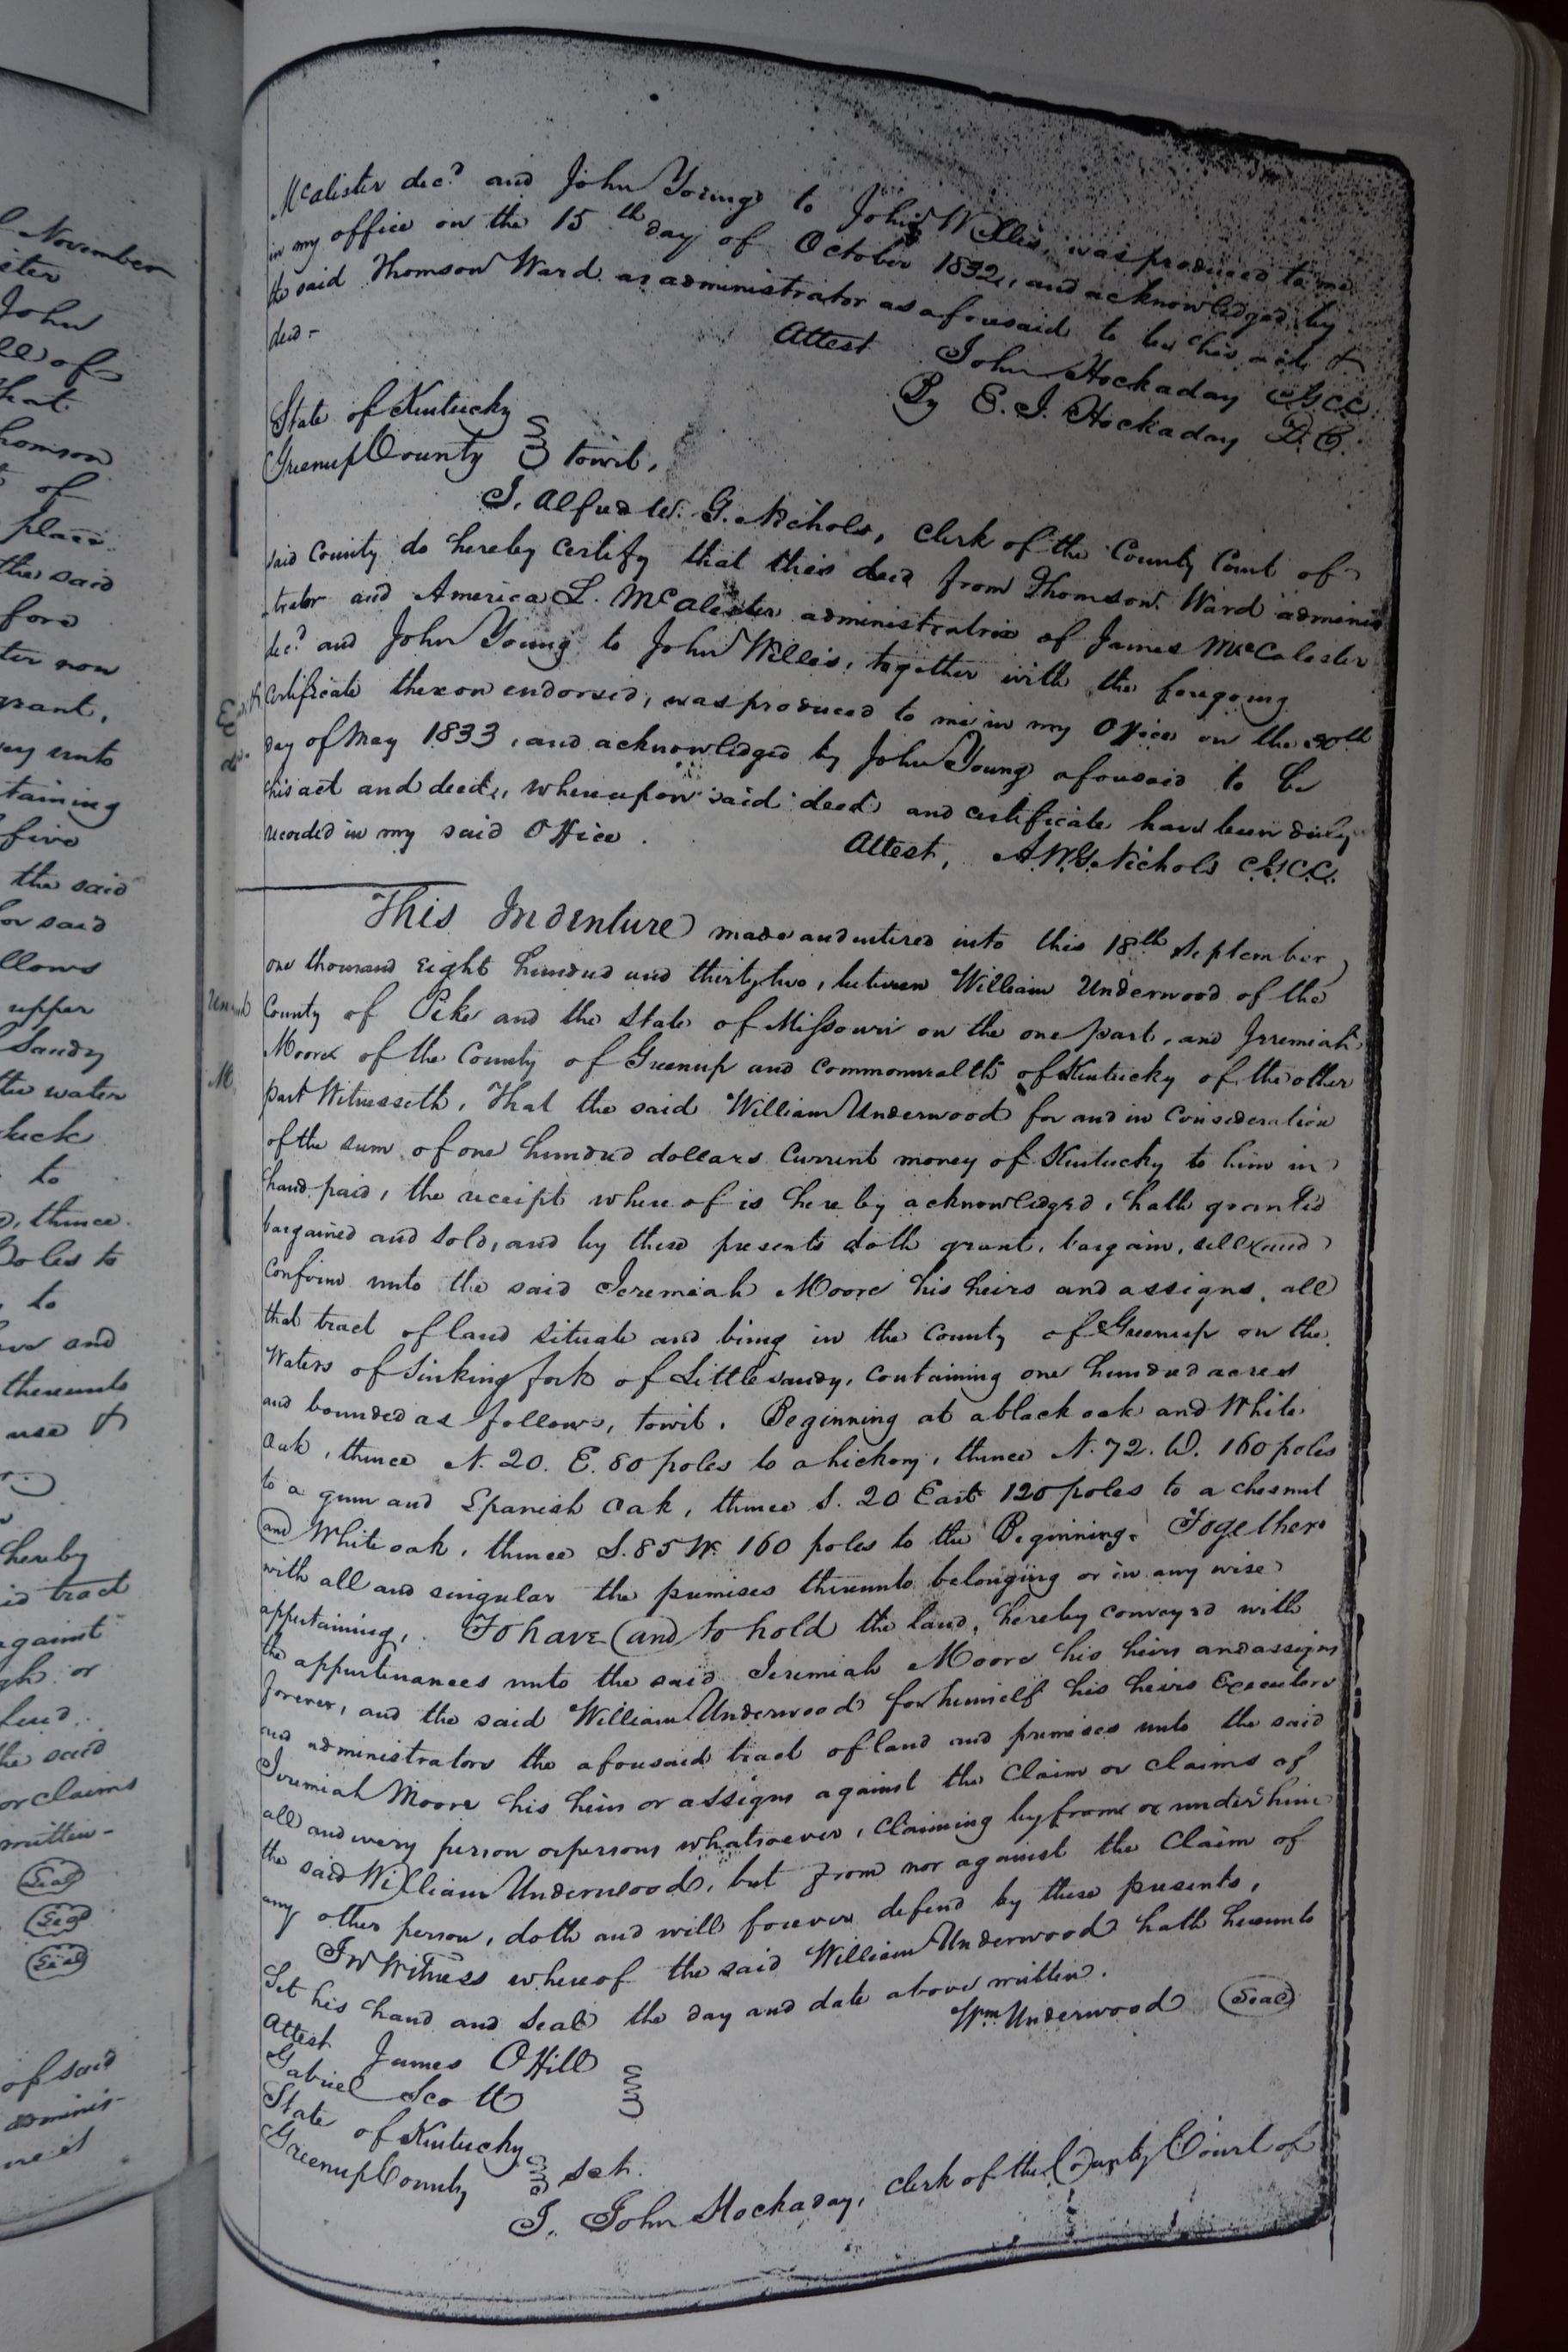 l November
ister
John
ll of
that
homson
t of
place
the said
fore
ter now
grant,
ey unto
taining
five
the said
or said
llows
upper
Sandy
the water
buck
to
thence
Poles to
to
and
thereunto
use &
hereby
id tract
against
gh or
fend
the said
or claims
written -
Seal
Seal
Seal
of said
adminis-
McAlister decd and John Young to John Willis, was produced to me
in my office on the 15th day of October 1832, and acknowledged by
the said Thomson Ward as administrator as aforesaid to be his act &
deed -
Attest John Hockaday C.G.C.C.
By E. I. Hockaday D.C.
State of Kentucky
Greenup County towit,
I, Alfred W. G. Nichols, Clerk of the County Court of
said County do hereby Certify that this deed from Thomson Ward adminis
-trator and America L. McAlester administratrix of James McCalester
decd and John Young to John Willis, together with the foregoing
Certificate thereon endorsed, was produced to me in my Office on the 30th
day of May 1833, and acknowledged by John Young aforesaid to be
his act and deed, whereupon said deed and certificate have been duly
recorded in my said Office.
Attest, A.W.G. Nichols C.G.C.C.
This Indenture made and entered into this 18th September
one thousand eight hundred and thirty two, between William Underwood of the
County of Pike and the State of Missouri on the one part, and Jerremiah
Moore of the County of Greenup and Commonwealth of Kentucky of the other
part Witnesseth, That the said William Underwood for and in Consideration
of the sum of one hundred dollars Current money of Kentucky to him in
hand paid, the receipt where of is here by acknowledged, hath granted
bargained and sold, and by these presents doth grant, bargain, sell and
Confirm unto the said Jeremiah Moore his heirs and assigns, all
that tract of land situate and being in the County of Greenup on the
Waters of Sinking fork of Little sandy, Containing one hundred acres
and bounded as follows, towit. Beginning at a black oak and White
Oak, thence N. 20. E. 80 poles to a hickory, thence N. 72. W. 160 poles
to a gum and Spanish Oak, thence S. 20 East 120 poles to a chesnut
and White oak, thence S. 85 W. 160 poles to the Beginning. Together
with all and singular the premises thereunto belonging or in any wise
appertaining, To have and to hold the land, hereby conveyed with
the appurtenances unto the said Jeremiah Moore his heirs and assigns
forever, and the said William Underwood for himself his heirs Executors
and administrators the aforesaid tract of land and premises unto the said
Jeremiah Moore his heirs or assigns against the Claim or Claims of
all and every person or persons whatsoever, Claiming by from or under him
the said William Underwood, but from nor against the Claim of
any other person, doth and will forever defend by these presents,
In Witness whereof the said William Underwood hath hereunto
Set his hand and Seal the day and date above written.
Wm Underwood Seal
Attest James O Hill
Gabriel Scott
State of Kentucky
Greenup County Sct.
I, John Hockaday, Clerk of the County Court of